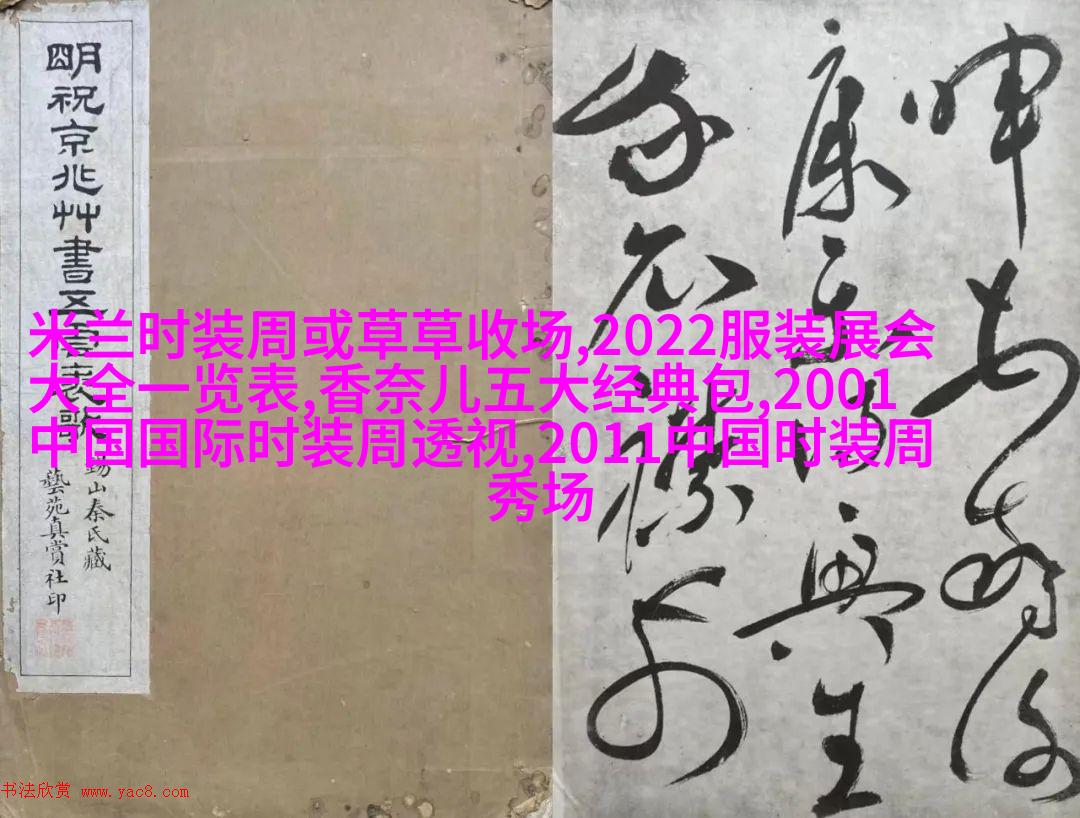 朙祝京兆艸書五雲裘歌
錫山秦氏藏
藝苑真賞社印
米兰时装周或草草收场,2022服装展会
大全一览表,香奈儿五大经典包,2001
中国国际时装周透视,2011中国时装周
秀场
暉
康樂詩興生
我衣襟前
书法欣赏 www.yac8.com